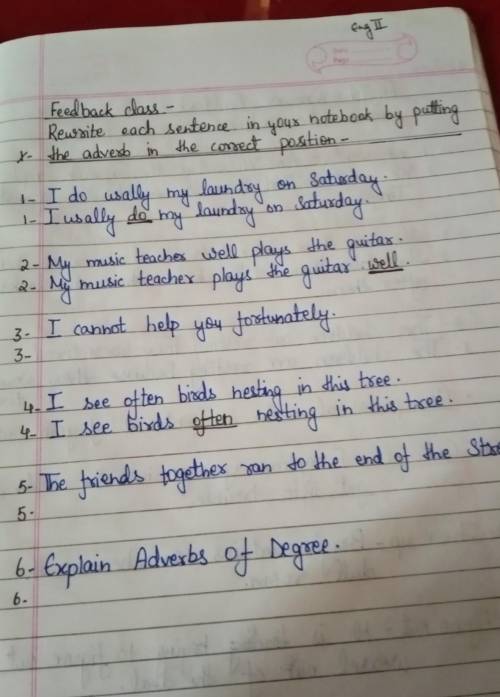 Eng II
Feedback class -
Rewrite each sentence in your notebook by putting
x- the adverb in the correct position -
1- I do usally my laundry on Saturday.
1- I usally do my laundry on Saturday.
2- My music teacher well plays the guitar.
2- My music teacher plays the guitar well.
3- I cannot help you fortunately.
3-
4- I see often birds nesting in this tree.
4- I see birds often nesting in this tree.
5- The friends together ran to the end of the
5-
6- Explain Adverbs of Degree.
6.